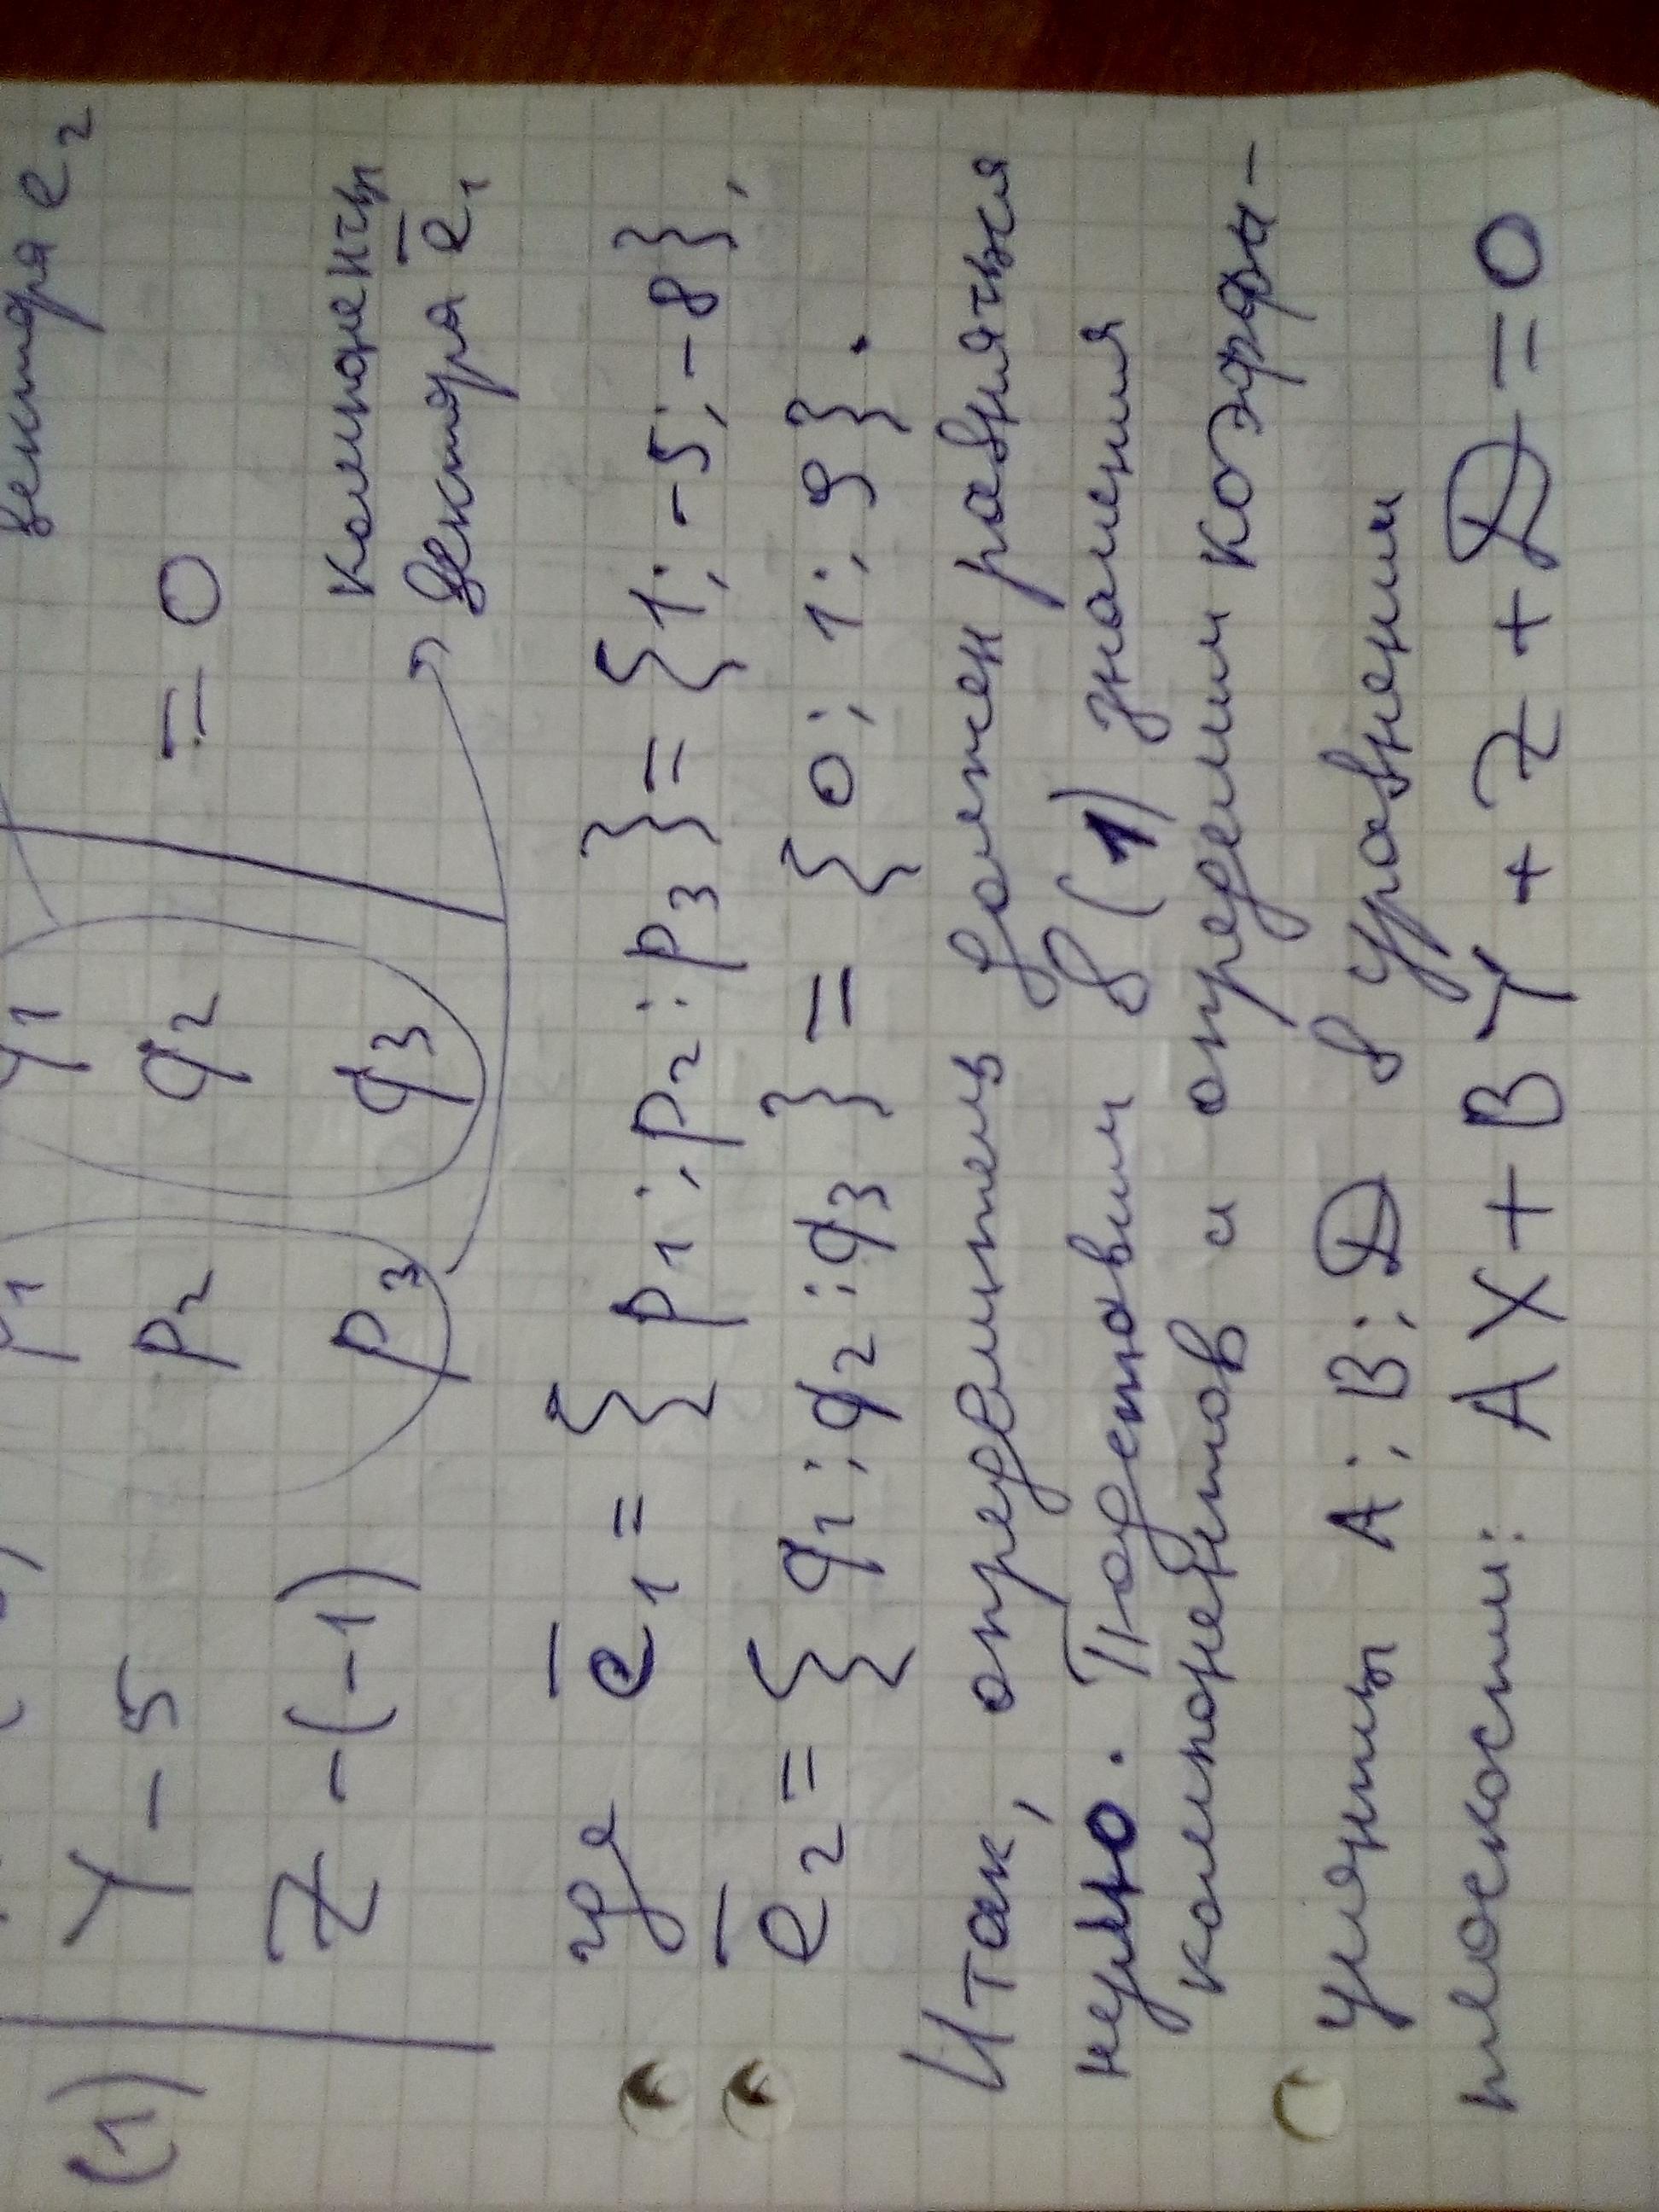 вектора e₂
p₁ q₁
(1) Y - 5 p₂ q₂ = 0
Z - (-1) p₃ q₃
компоненты
вектора e̅₁
где e̅₁ = { p₁; p₂; p₃ } = { 1; -5; -8 },
e̅₂ = { q₁; q₂; q₃ } = { 0; 1; 9 }.
Итак, определитель должен равняться
нулю. Подставим в (1) значения
компонентов и определим коэффи-
циенты A; B; D в уравнении
плоскости: AX + BY + Z + D = 0